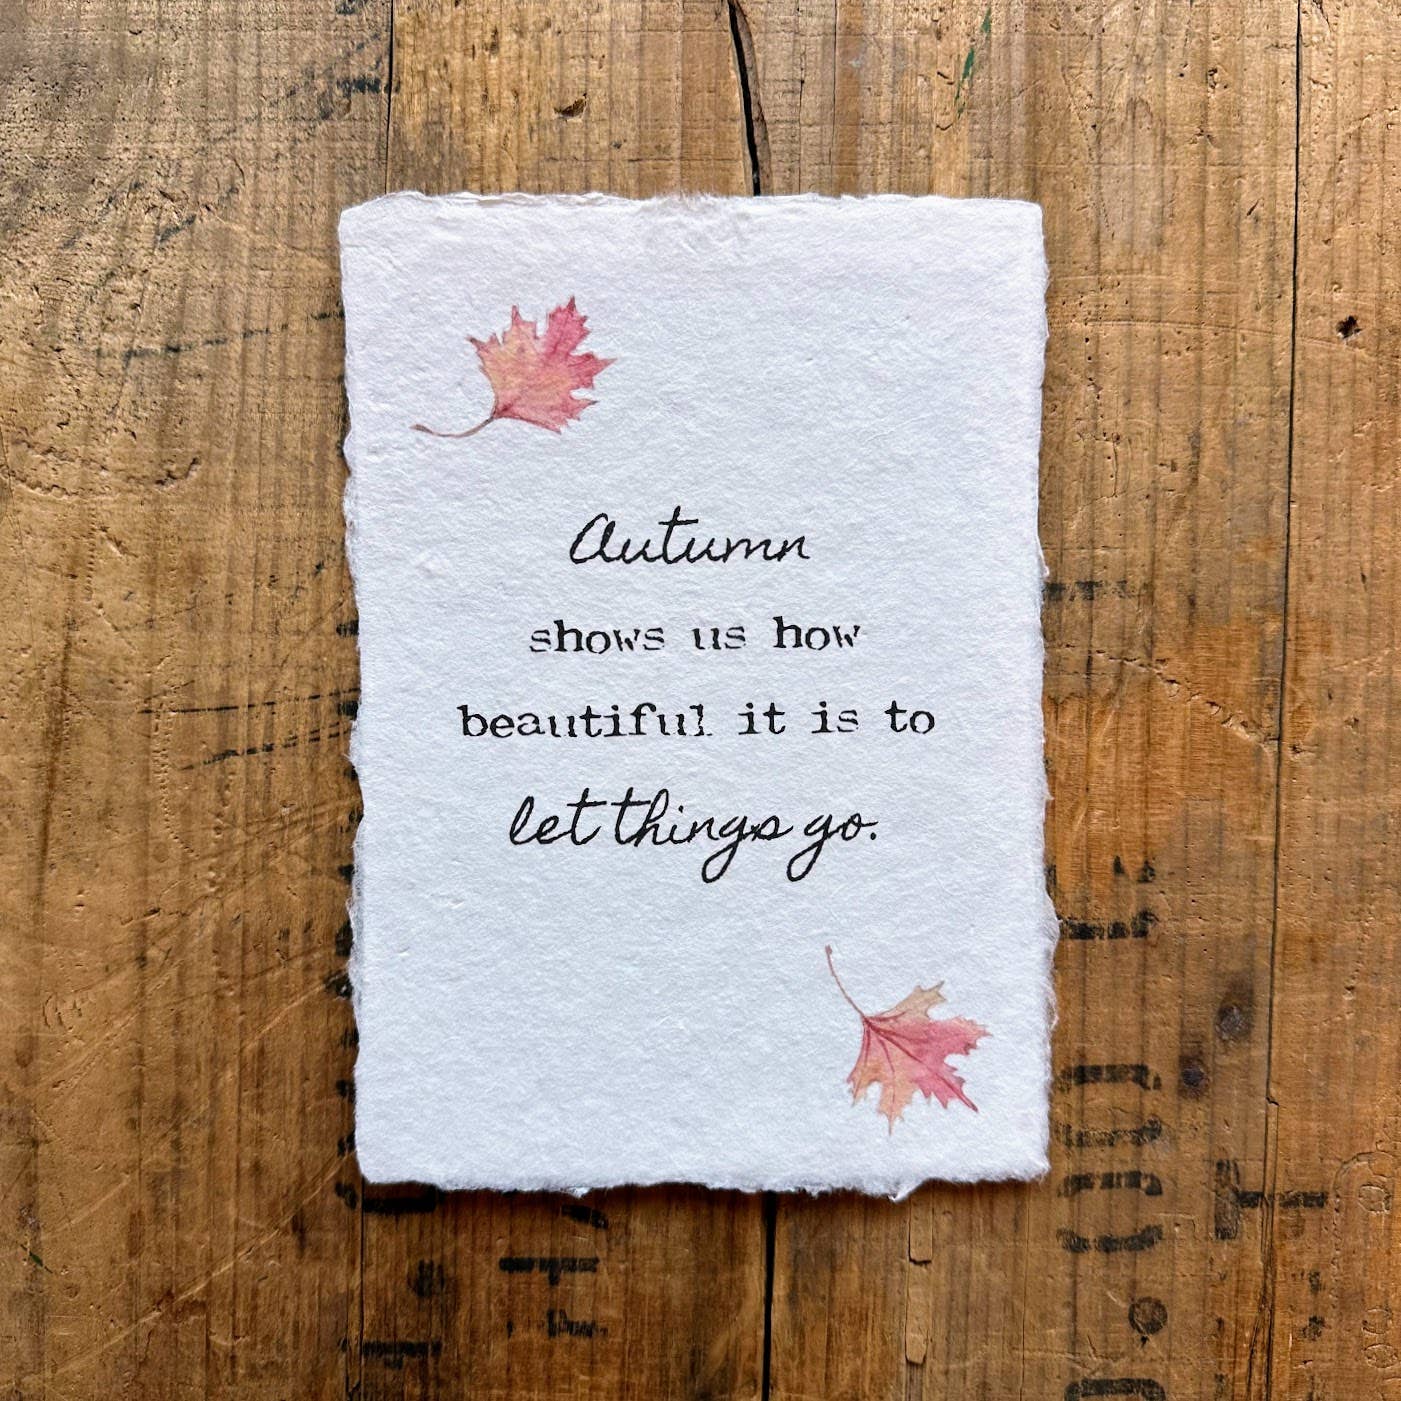 Autumn
shows us how
beautiful it is to
let things go.